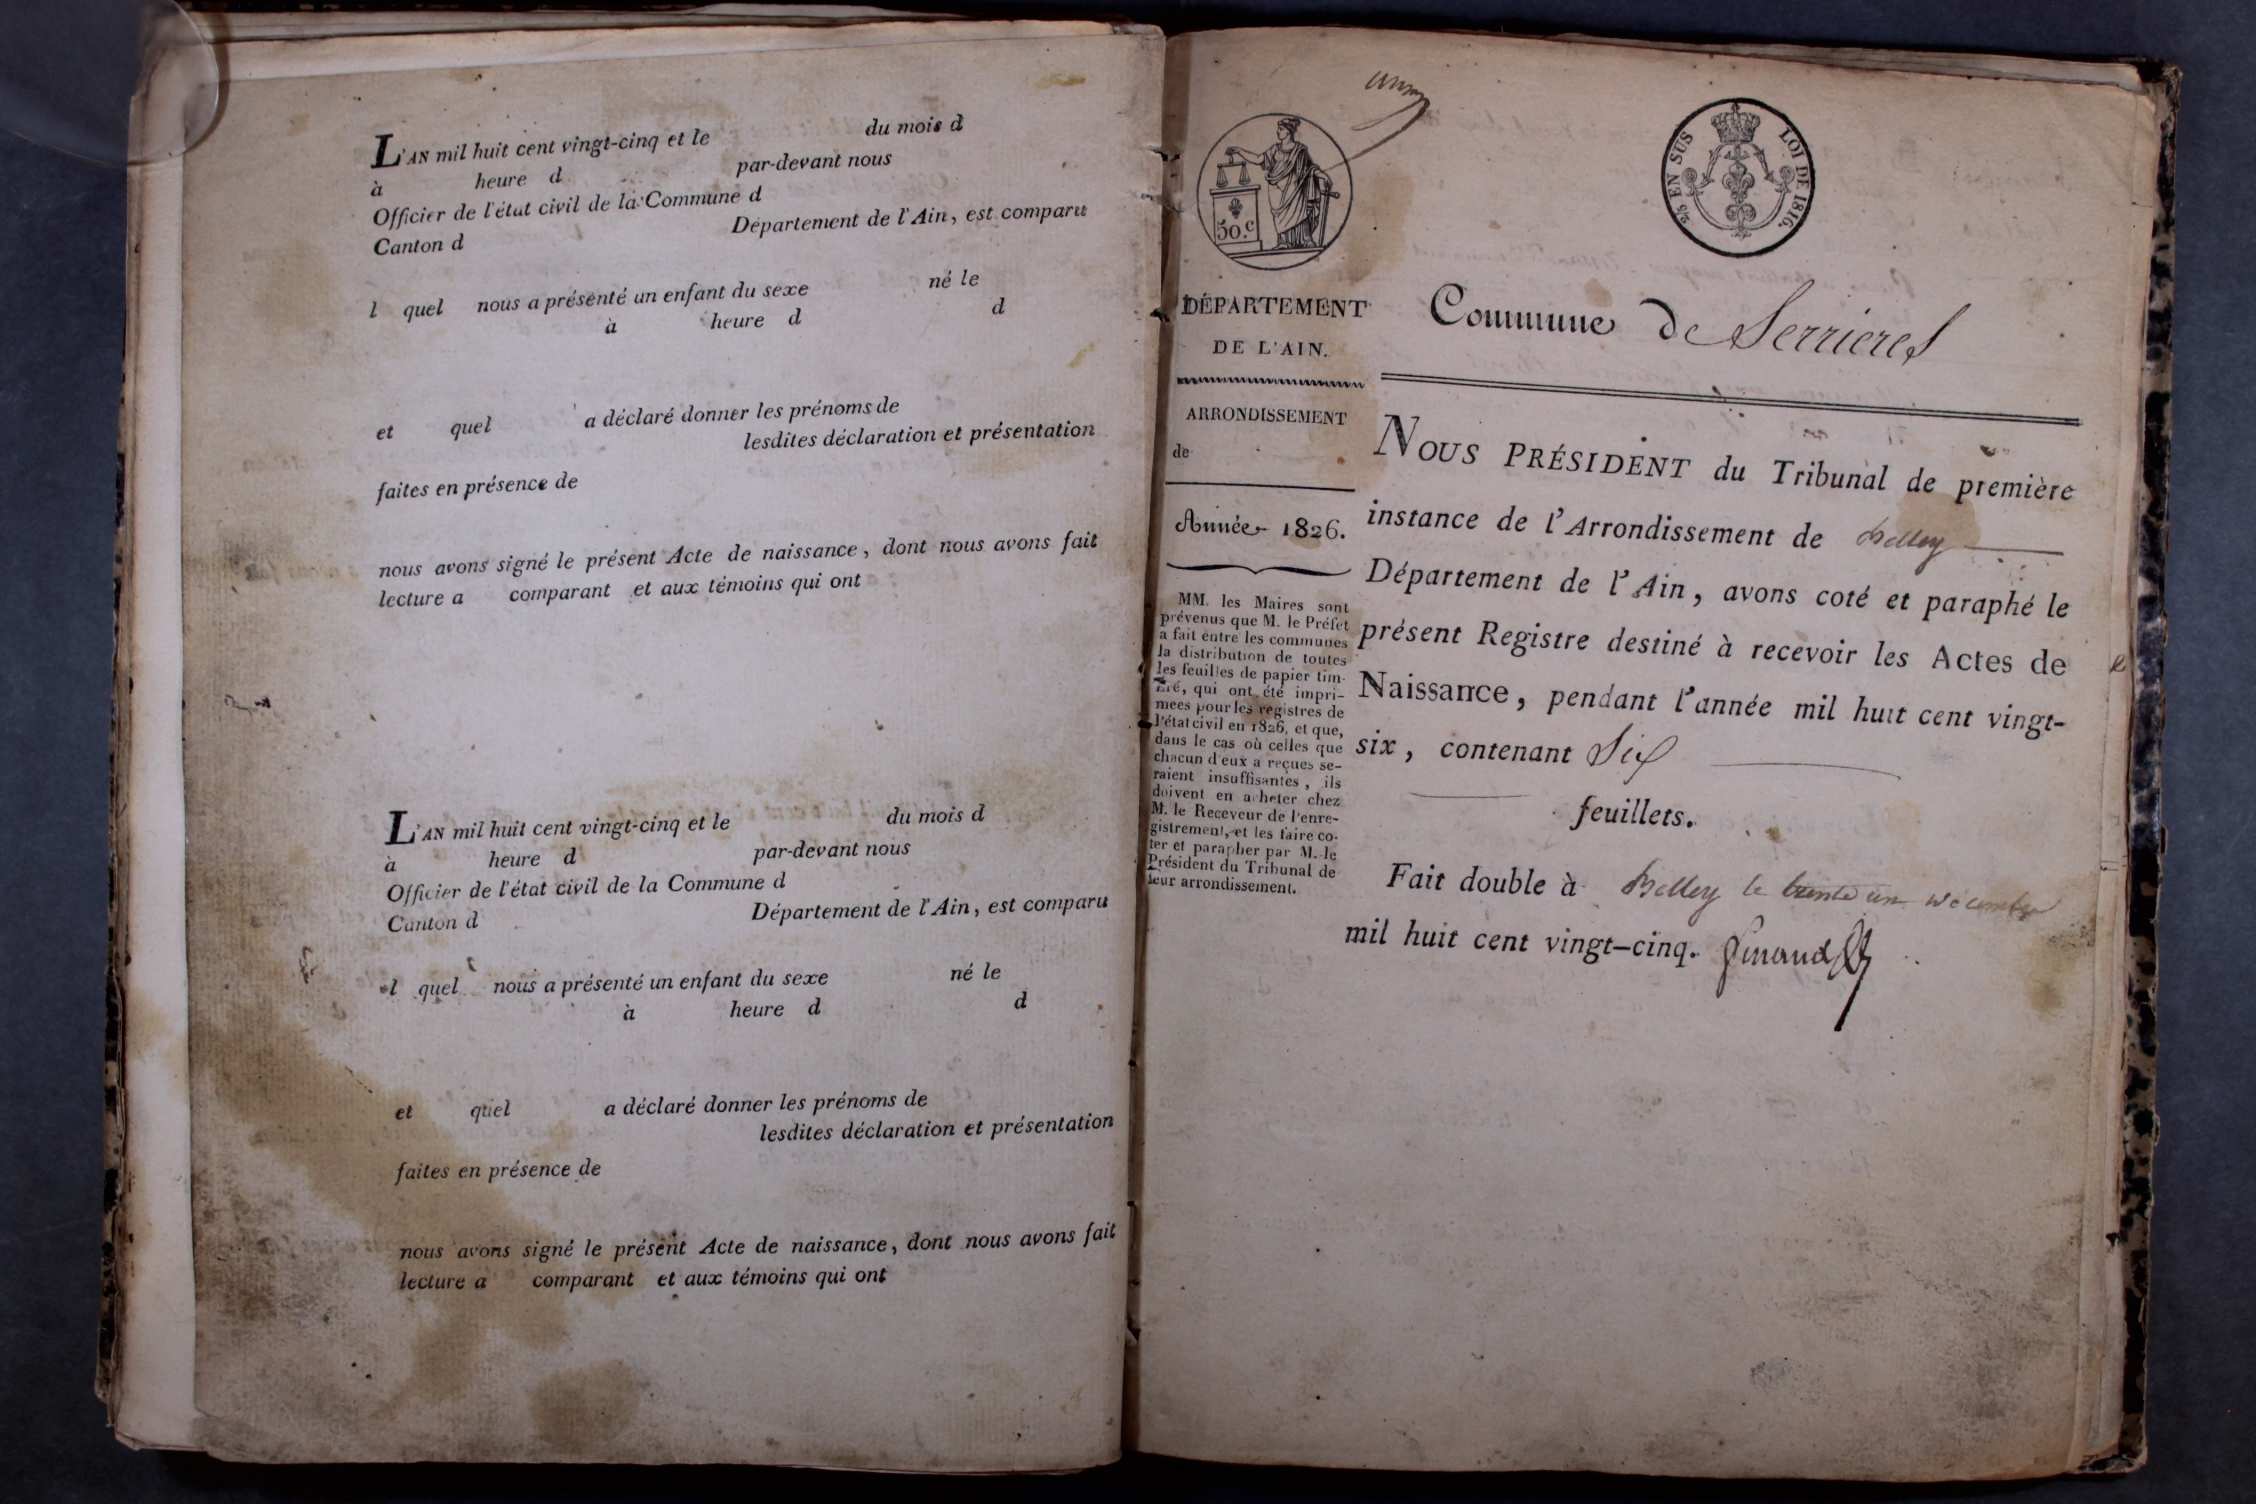 L'AN mil huit cent vingt-cinq et le du mois d
à heure d par-devant nous
Officier de l'état civil de la Commune d
Canton d Département de l'Ain, est comparu
l quel nous a présenté un enfant du sexe né le
à heure d d
et quel a déclaré donner les prénoms de
lesdites déclaration et présentation
faites en présence de
nous avons signé le présent Acte de naissance, dont nous avons fait
lecture a comparant et aux témoins qui ont
L'AN mil huit cent vingt-cinq et le du mois d
à heure d par-devant nous
Officier de l'état civil de la Commune d
Canton d Département de l'Ain, est comparu
l quel nous a présenté un enfant du sexe né le
à heure d d
et quel a déclaré donner les prénoms de
lesdites déclaration et présentation
faites en présence de
nous avons signé le présent Acte de naissance, dont nous avons fait
lecture a comparant et aux témoins qui ont
50.c
EN SUS LOI DE 1816.
DÉPARTEMENT
DE L'AIN.
ARRONDISSEMENT
de
Année 1826.
MM. les Maires sont
prévenus que M. le Préfet
a fait entre les communes
la distribution de toutes
les feuilles de papier tim-
bré, qui ont été impri-
mées pour les registres de
l'état civil en 1826, et que,
dans le cas où celles que
chacun d'eux a reçues se-
raient insuffisantes, ils
doivent en acheter chez
M. le Receveur de l'enre-
gistrement, et les faire co-
ter et parapher par M. le
Président du Tribunal de
leur arrondissement.
Commune de Serrieres
NOUS PRÉSIDENT du Tribunal de première
instance de l'Arrondissement de Belley
Département de l'Ain, avons coté et paraphé le
présent Registre destiné à recevoir les Actes de
Naissance, pendant l'année mil huit cent vingt-
six, contenant Six
feuillets.
Fait double à Belley le trente un décembre
mil huit cent vingt-cinq.